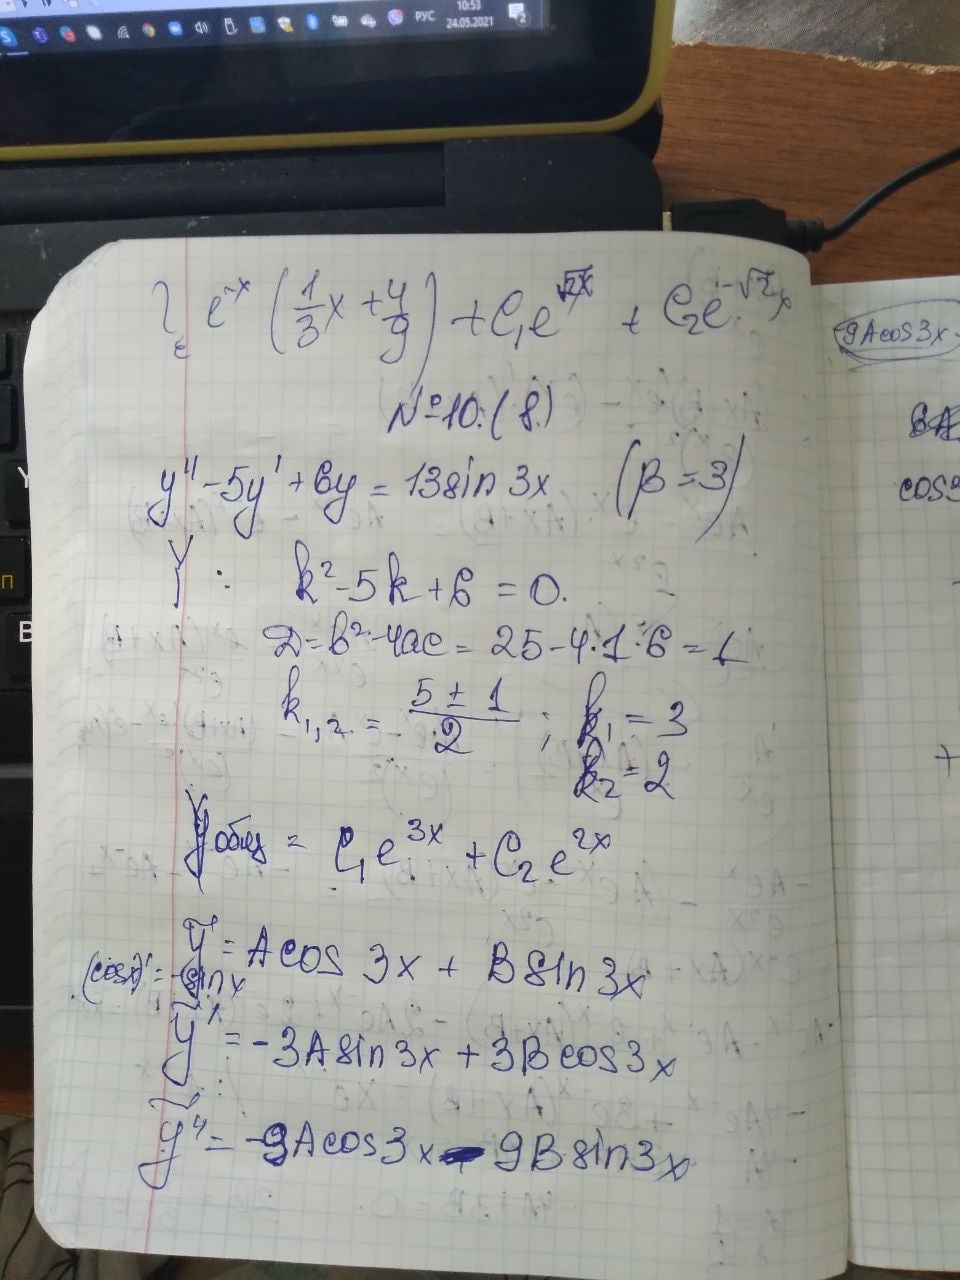 10:53
РУС
24.05.2021
2
e^-x (1/3 x + 4/9) + C₁e^√2x + C₂e^-√2x
№10.(8)
y'' - 5y' + 6y = 13sin 3x (β = 3)
Y : k² - 5k + 6 = 0.
Д = в² - 4ac = 25 - 4·1·6 = 1
k₁,₂ = (5 ± 1)/2 ; k₁ = 3
k₂ = 2
Yобщ = C₁e^3x + C₂e^2x
ỹ = Acos 3x + Bsin 3x
(cosx)' = -sinx
ỹ' = -3Asin3x + 3Bcos3x
ỹ'' = -9Acos3x - 9Bsin3x
9Acos3x -
cos3
+
п